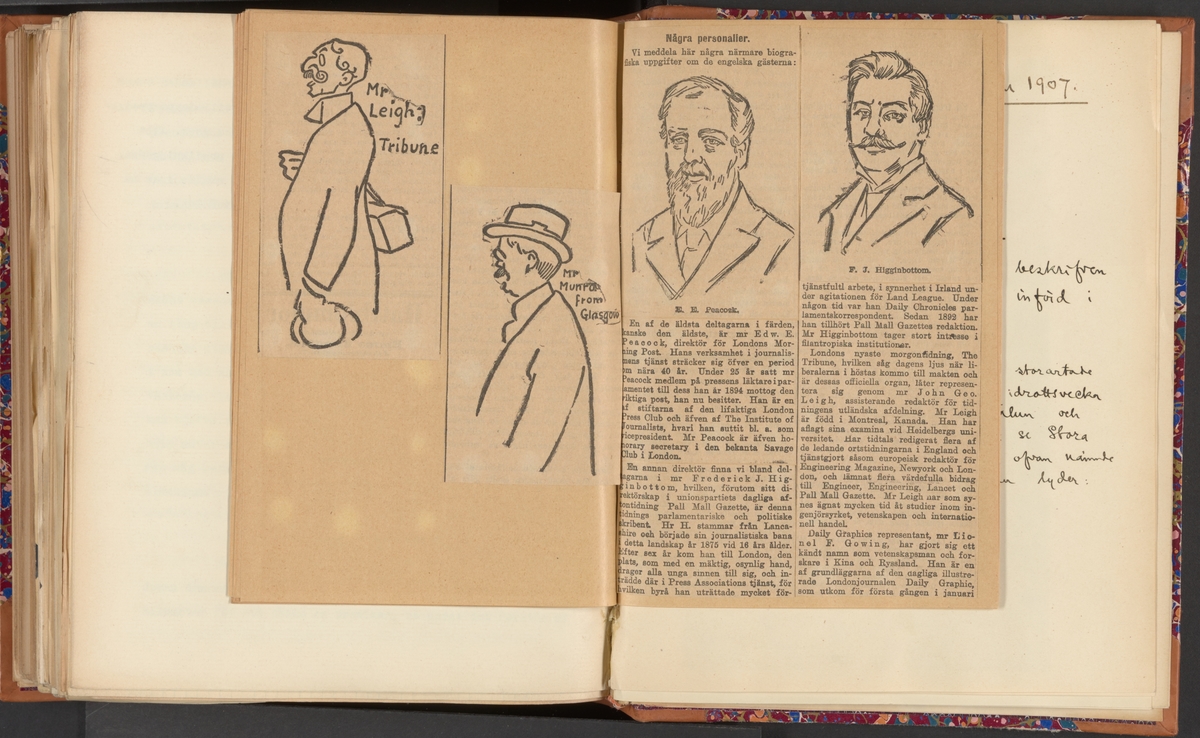 Mr
Leigh;
Tribune
Mr
Munro
from
Glasgow
Några personalier.
Vi meddela här några närmare biogra-
fiska uppgifter om de engelska gästerna:
E. E. Peacock.
En af de äldsta deltagarna i färden,
kanske den äldste, är mr Edw. E.
Peacock, direktör för Londons Mor-
ning Post. Hans verksamhet i journalis-
mens tjänst sträcker sig öfver en period
om nära 40 år. Under 25 år satt mr
Peacock medlem på pressens läktare i par-
lamentet till dess han år 1894 mottog den
viktiga post, han nu besitter. Han är en
af stiftarna af den lifaktiga London
Press Club och äfven af The Institute of
Journalists, hvari han suttit bl. a. som
vicepresident. Mr Peacock är äfven ho-
norary secretary i den bekanta Savage
Club i London.
En annan direktör finna vi bland del-
tagarna i mr Frederick J. Hig-
ginbottom, hvilken, förutom sitt di-
rektörskap i unionspartiets dagliga af-
tontidning Pall Mall Gazette, är denna
tidnings parlamentariske och politiske
skribent. Hr H. stammar från Lanca-
shire och började sin journalistiska bana
i detta landskap år 1875 vid 16 års ålder.
Efter sex år kom han till London, den
plats, som med en mäktig, osynlig hand,
drager alla unga sinnen till sig, och in-
trädde där i Press Associations tjänst, för
hvilken byrå han uträttade mycket för-
F. J. Higginbottom.
tjänstfullt arbete, i synnerhet i Irland un-
der agitationen för Land League. Under
någon tid var han Daily Chronicles par-
lamentskorrespondent. Sedan 1892 har
han tillhört Pall Mall Gazettes redaktion.
Mr Higginbottom tager stort intresse i
filantropiska institutioner.
Londons nyaste morgontidning, The
Tribune, hvilken såg dagens ljus när li-
beralerna i höstas kommo till makten och
är dessas officiella organ, låter represen-
tera sig genom mr John Geo.
Leigh, assisterande redaktör för tid-
ningens utländska afdelning. Mr Leigh
är född i Montreal, Kanada. Han har
aflagt sina examina vid Heidelbergs uni-
versitet. Har tidtals redigerat flera af
de ledande ortstidningarna i England och
tjänstgjort såsom europeisk redaktör för
Engineering Magazine, Newyork och Lon-
don, och lämnat flera värdefulla bidrag
till Engineer, Engineering, Lancet och
Pall Mall Gazette. Mr Leigh har som sy-
nes ägnat mycken tid åt studier inom in-
genjörsyrket, vetenskapen och internatio-
nell handel.
Daily Graphics representant, mr Lio-
nel F. Gowing, har gjort sig ett
kändt namn som vetenskapsman och for-
skare i Kina och Ryssland. Han är en
af grundläggarna af den dagliga illustre-
rade Londonjournalen Daily Graphic,
som utkom för första gången i januari
1907.
beskrifven
införd i
storartade
idrottsvecka
och
se Stora
ofvan nämnde
lyder: